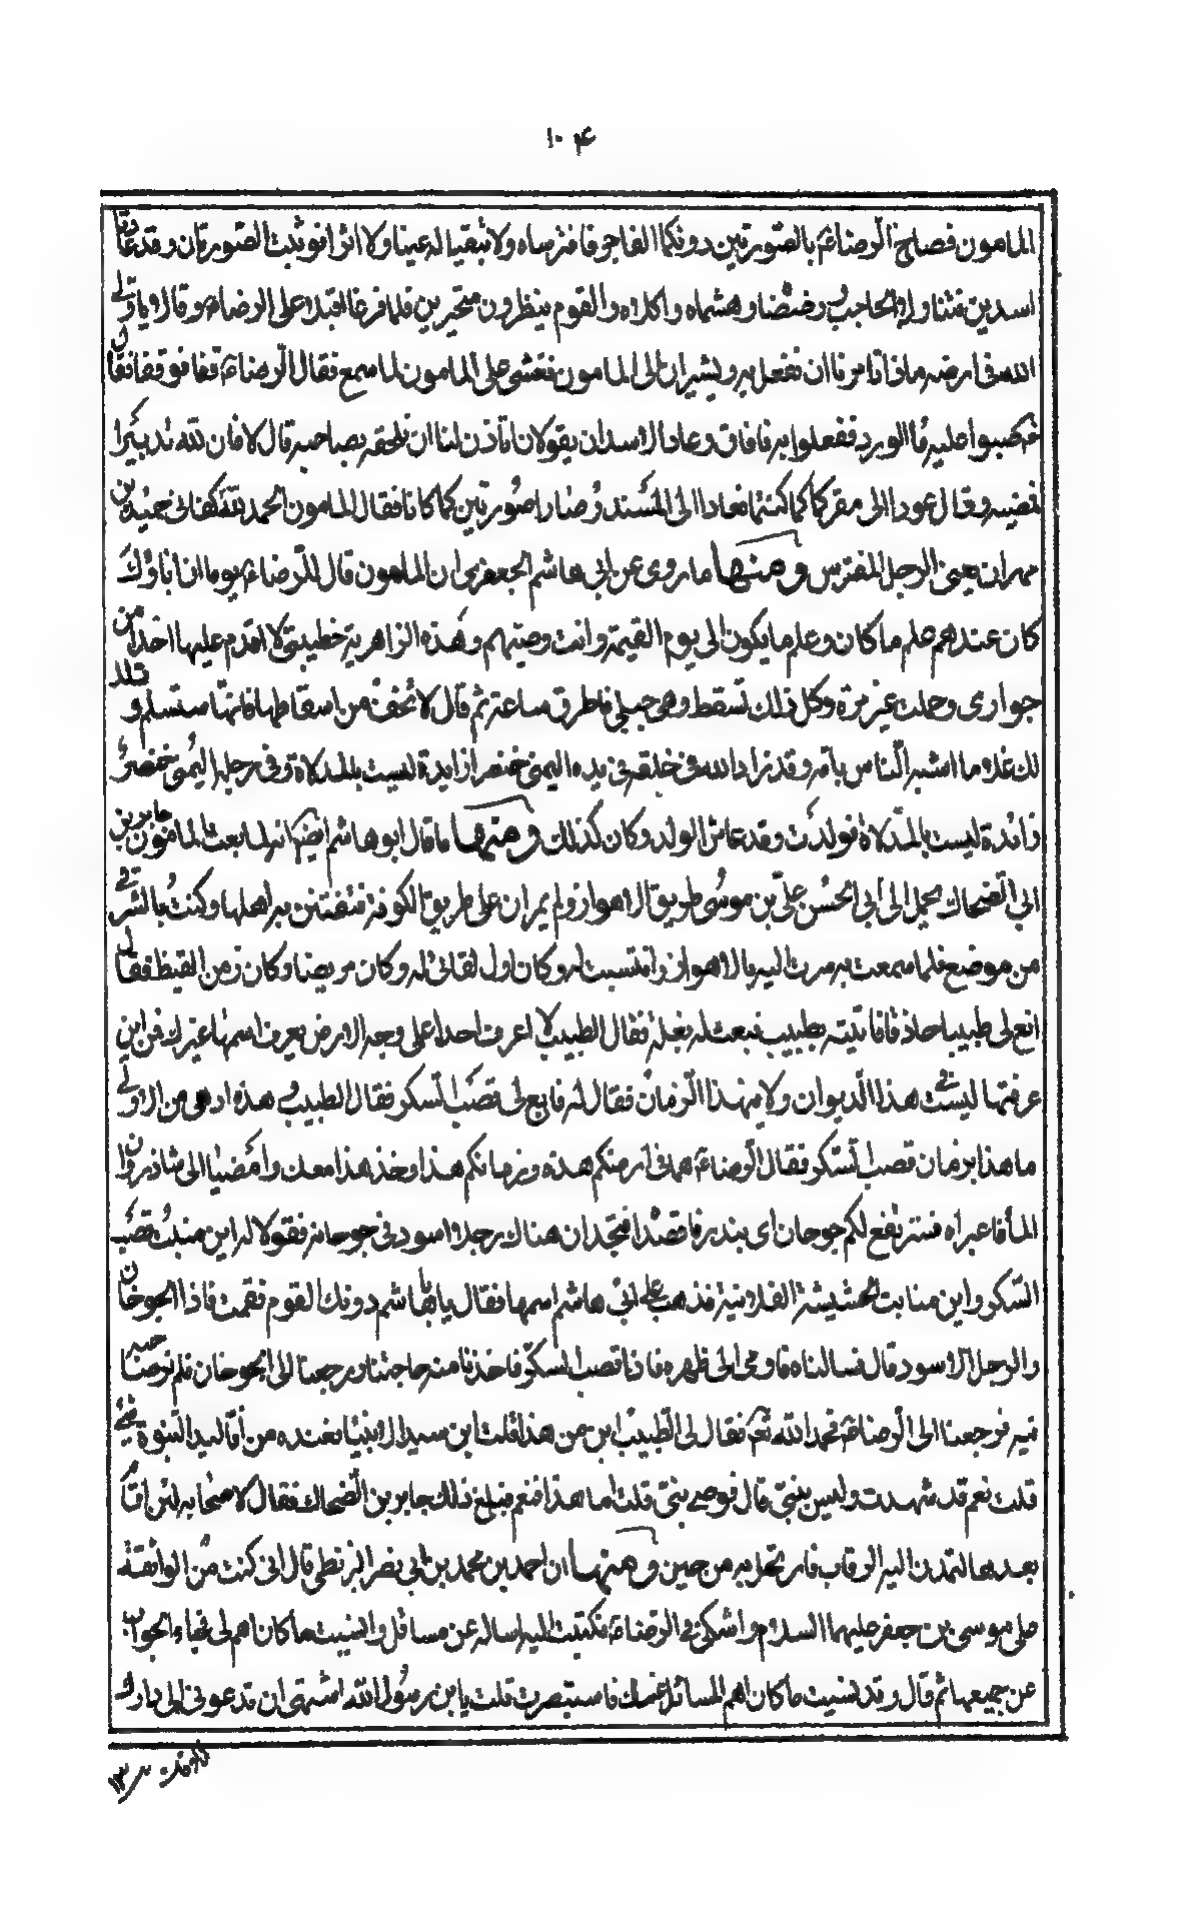 ۱۰۴
المامون فصاح الرضاء بالصورتين دونكما الفاجر فافترساه ولا تبقيا له عينا ولا اثرا فوثبت الصورتان وقد عادتا
اسدين فتناولا الحاجب ورضضا وهشماه واكلاه والقوم ينظرون متحيرين فلما فرغا اقبلا على الرضاء وقالا يا ولي
الله في ارضه ماذا تامرنا ان نفعل به ويشيران الى المامون فغشى على المامون لما سمع فقال الرضاء قفا فوقفا فقال
صبوا عليه ماالورد ففعلوا به فافاق وعاد الاسدان يقولان اتاذن لنا ان نلحقه بصاحبه قال لا فان لله تدبيرا
فقال عودا الى مقركما كما كنتما فعادا الى المسند وصارا صورتين كما كانا فقال المامون الحمد لله كفانى حميد بن
مهران يعنى الرجل المفترس ومنها ما روى عن ابي هاشم الجعفرى ان المامون قال للرضاء يوما ان اباؤك
كان عندهم علم ما كان وعلم ما يكون الى يوم القيمة وانت وصيهم وهذه الزاهرية خطيبتى لا اقدم عليها احدا من
جوارى وحملت غير مرة وكل ذلك تسقط وهى حبلى فاطرق ساعة ثم قال لا تخف من اسقاطها فانها ستسلم وتلد
لك غلاما اشبه الناس بامه وقد زاد الله فى خلقه فى يده اليمنى خنصرا زايدة ليست بالمدلاة وفى رجله اليمنى خنصر
زائدة ليست بالمدلاة فولدت وقد عاش الولد وكان كذلك ومنها ما قال ابو هاشم ايضا انه لما بعث المامون جابر بن
ابي الضحاك بحمل الى ابي الحسن علي بن موسى طريق الاهواز ولم يمر ان على طريق الكوفة فتفتتن به اهلها وكنت بالشرقي
من موضع فلما سمعت به سرت اليه بالاهواز وانتسبت له وكان اول لقائى له وكان مريضا وكان زمن القيظ فقال
ابغ لى طبيبا حاذقا فاتيته بطبيب فبعث له بغلة فقال الطبيب لا اعرف احدا على وجه الارض يعرف اسمها غيرك فمن اين
عرفتها ليست فى هذا الديوان ولا فى هذا الزمان فقال له فابغ لى قصب السكر فقال الطبيب هذه ادهى من الاولى
ما هذا بزمان قصب السكر فقال الرضاء هما فى ارضكم هذه وزمانكم هذا وخذ هذا معك وامضيا الى شاذروان
الماء فاعبراه فسترفع لكم جوخان اى بيدر فاقصدا فتجدان هناك رجلا اسود فى جوخانه فقولا له اين منبت قصب
السكر واين منابت الحشيشة الفلانية فذهب على ابي هاشم اسمها فقال يابا هاشم دونك القوم فقمت فاذا الجوخان
والرجل الاسود قال فسالناه فاومى الى ظهره فاذا قصب السكر فاخذنا منه حاجتنا ورجعنا الى الجوخان فلم نر صاحبه
فيه فرجعنا الى الرضاء فحمد الله نعم فقال لى الطبيب ابن من هذا قلت ابن سيد الانبياء فعنده من اقاليد النبوة شئ
قلت نعم قد شهدت وليس بنبى قال فوصى نبى قلت اما هذا فنعم فبلغ ذلك جابر بن الضحاك فقال لاصحابه لئن اقام
بعدها لتمدن اليه الرقاب فارتحل به من حين ومنها ان احمد بن محمد بن ابي نصر البزنطى قال انى كنت من الواقفة
على موسى بن جعفر عليهما السلام واشك فى الرضاء فكتبت اليه اساله عن مسائل ونسيت ما كان اهم لى فجاء الجواب
عن جميعها ثم قال وقد نسيت ما كان اهم المسائل عندك فاستبصرت قلت يابن رسول الله اشتهى ان تدعونى الى دارك